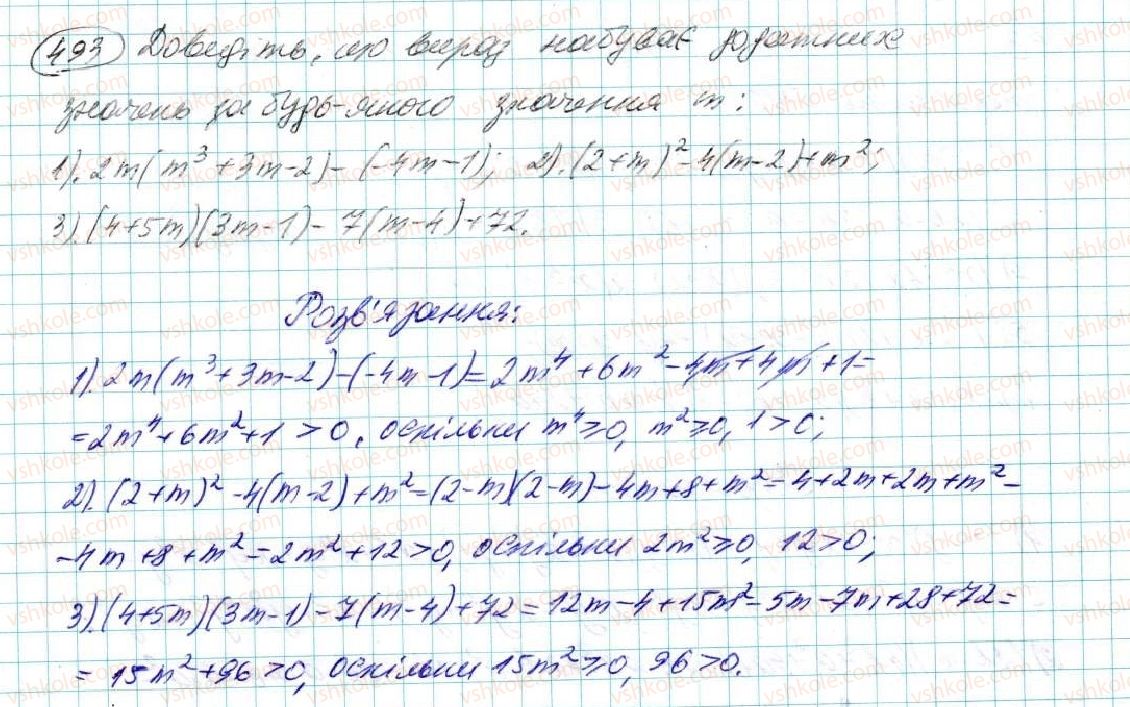 493 Доведіть, що вираз набуває додатних
значень за будь-якого значення m:
1). 2m(m³+3m-2)-(-4m-1); 2). (2+m)²-4(m-2)+m²;
3). (4+5m)(3m-1)-7(m-4)+72.
Розв'язання:
1). 2m(m³+3m-2)-(-4m-1)=2m⁴+6m²-4m+4m+1=
=2m⁴+6m²+1>0, оскільки m⁴≥0, m²≥0, 1>0;
2). (2+m)²-4(m-2)+m²=(2-m)(2-m)-4m+8+m²=4+2m+2m+m²-
-4m+8+m²=2m²+12>0, оскільки 2m²≥0, 12>0;
3). (4+5m)(3m-1)-7(m-4)+72=12m-4+15m²-5m-7m+28+72=
=15m²+96>0, оскільки 15m²≥0, 96>0.